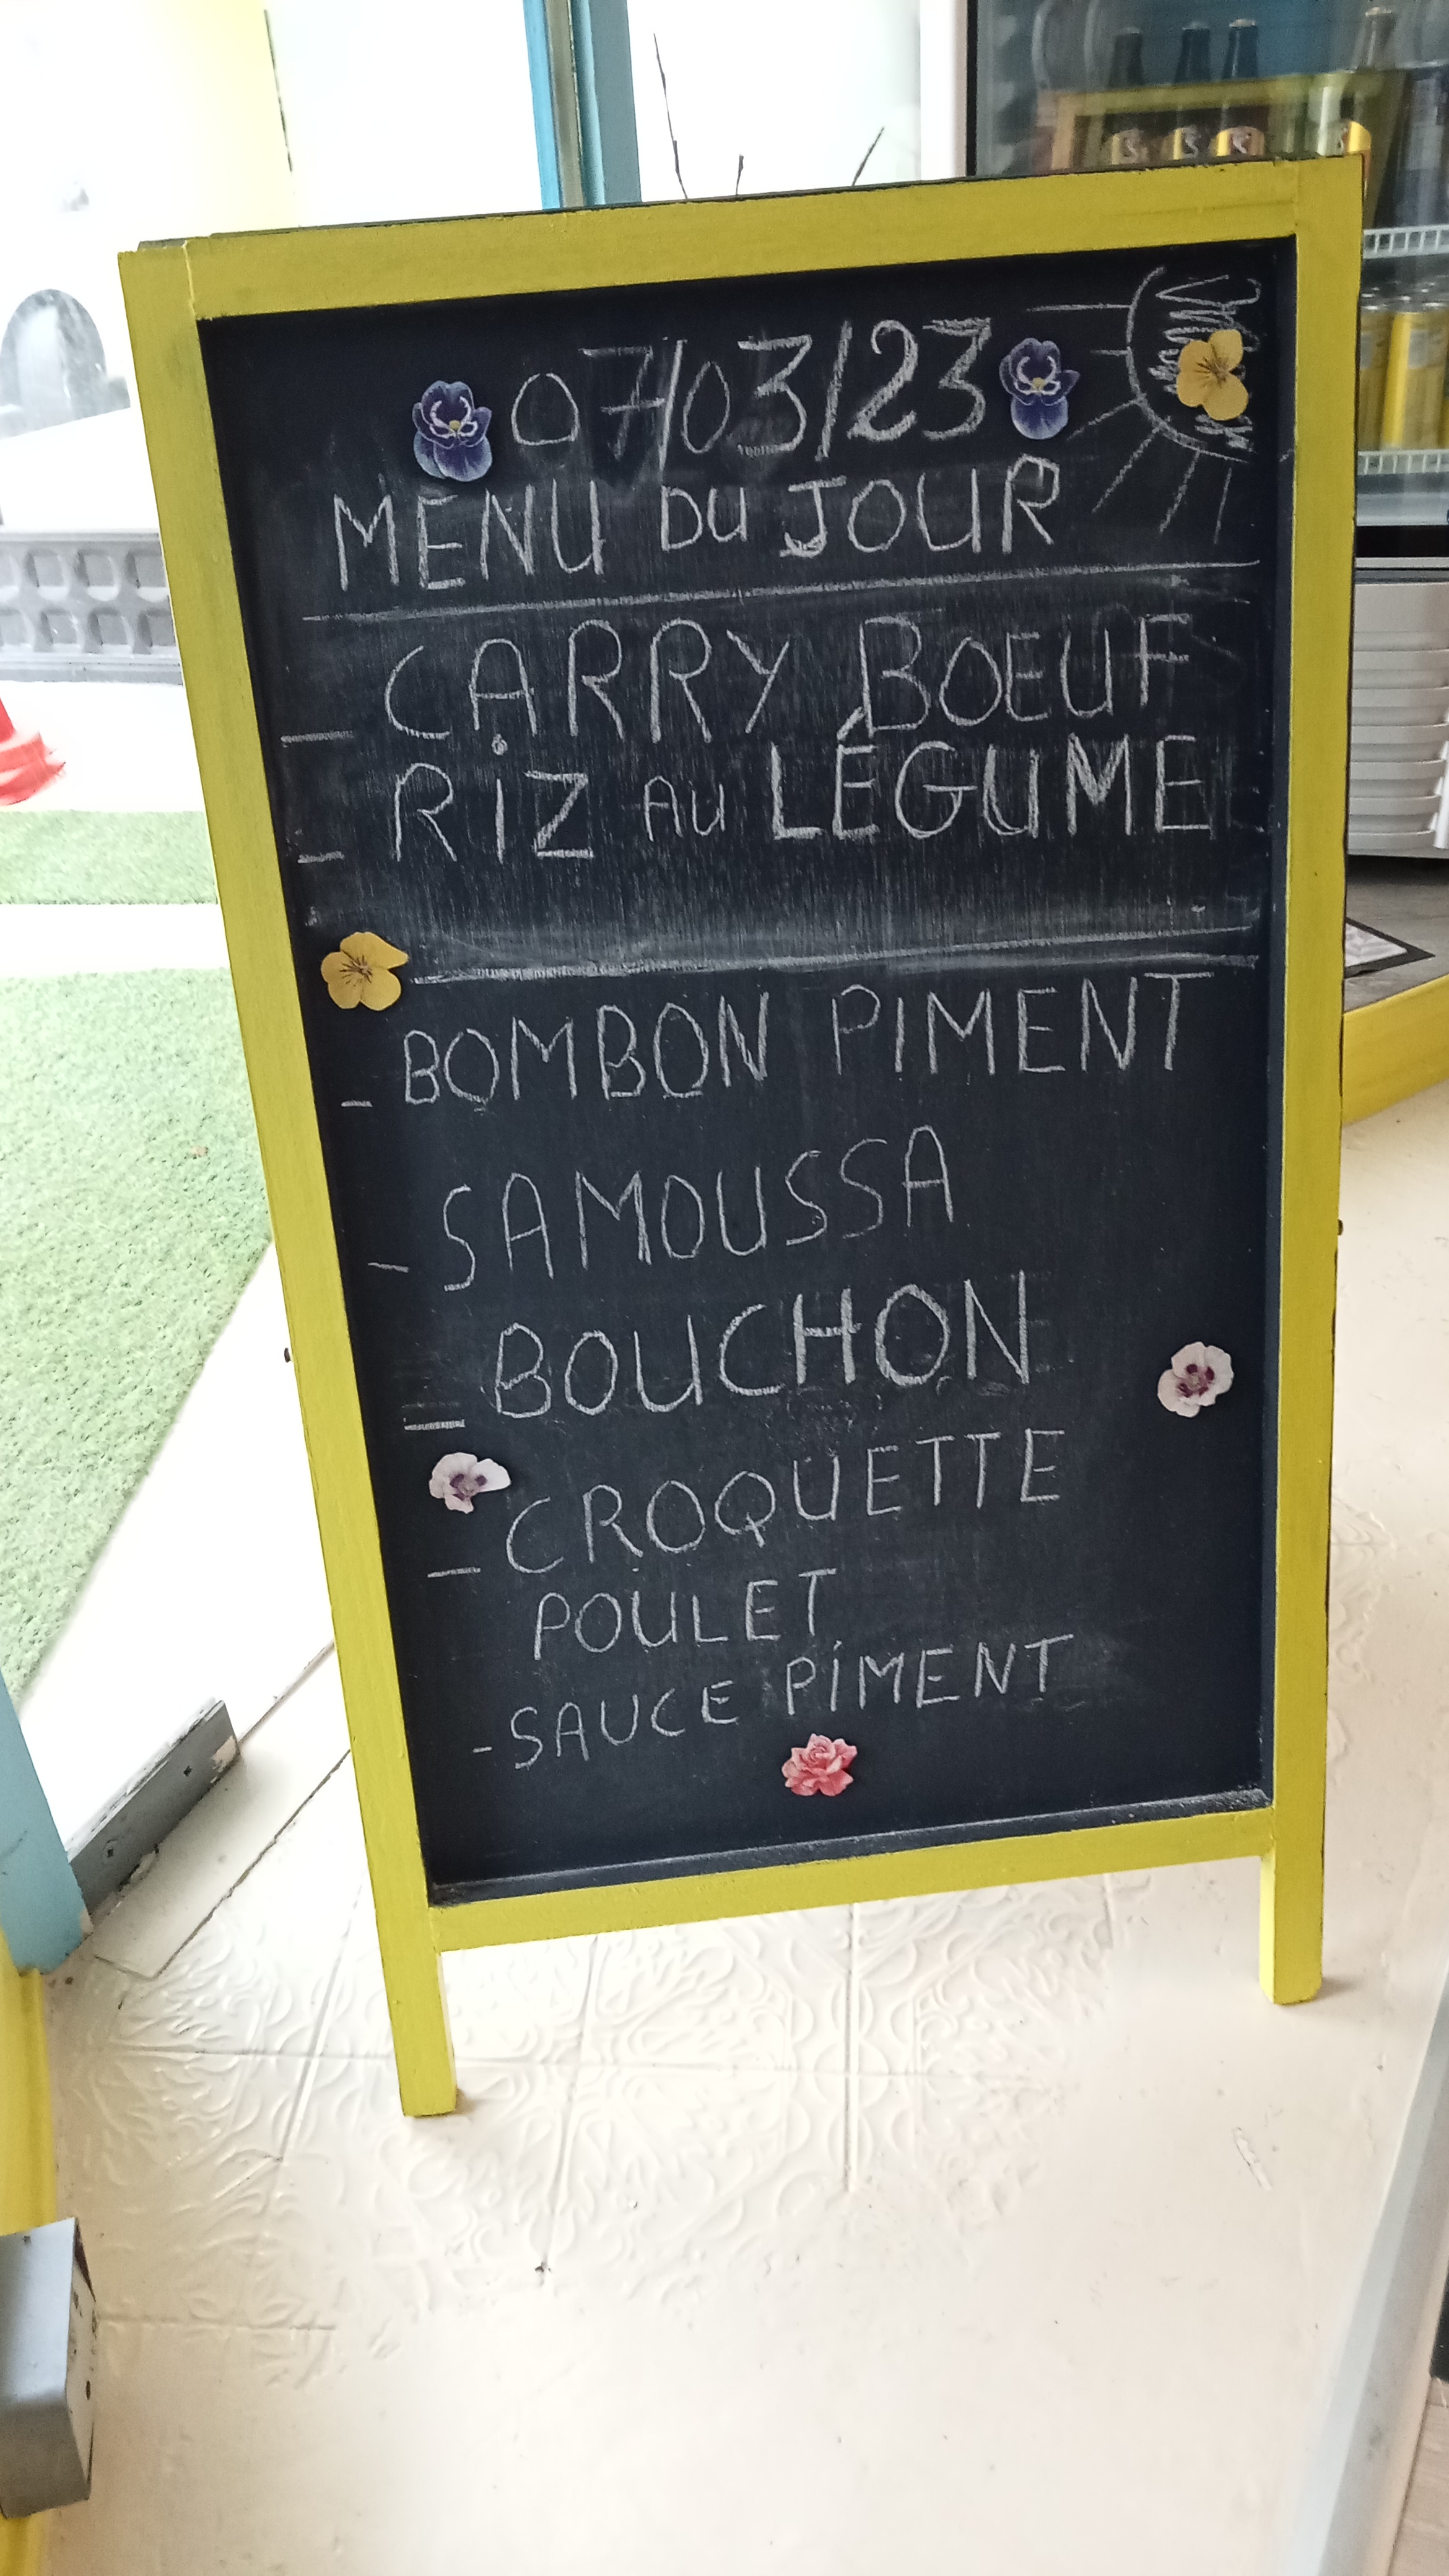 07/03/23
MENU DU JOUR
- CARRY BOEUF
- RiZ AU LÉGUME
- BOMBON PIMENT
- SAMOUSSA
- BOUCHON
- CROQUETTE
POULET
- SAUCE PiMENT